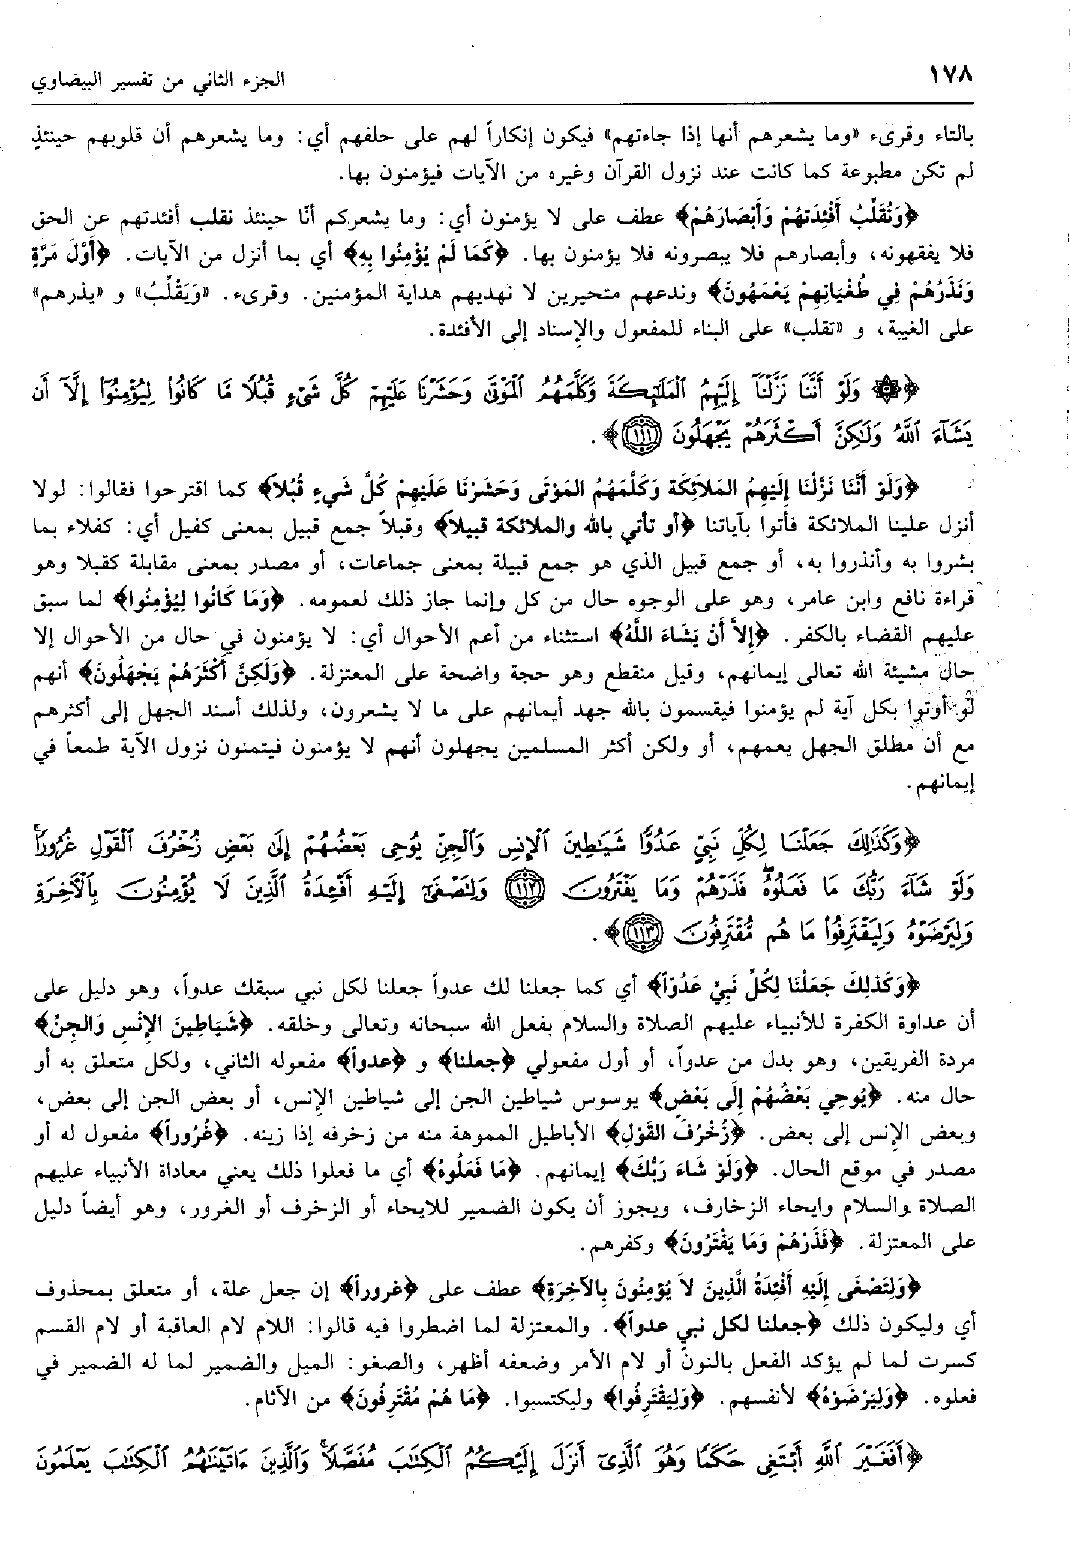 ١٧٨ الجزء الثاني من تفسير البيضاوي
بالتاء وقرىء «وما يشعرهم أنها إذا جاءتهم» فيكون إنكاراً لهم على حلفهم أي: وما يشعرهم أن قلوبهم حينئذٍ
لم تكن مطبوعة كما كانت عند نزول القرآن وغيره من الآيات فيؤمنون بها.
﴿وَنُقَلِّبُ أَفْئِدَتَهُمْ وَأَبْصَارَهُمْ﴾ عطف على لا يؤمنون أي: وما يشعركم أنّا حينئذ نقلب أفئدتهم عن الحق
فلا يفقهونه، وأبصارهم فلا يبصرونه فلا يؤمنون بها. ﴿كَمَا لَمْ يُؤْمِنُوا بِهِ﴾ أي بما أنزل من الآيات. ﴿أَوَّلَ مَرَّةٍ
وَنَذَرُهُمْ فِي طُغْيَانِهِمْ يَعْمَهُونَ﴾ وندعهم متحيرين لا نهديهم هداية المؤمنين. وقرىء. «وَيَقْلِّبُ» و «يذرهم»
على الغيبة، و «تقلب» على البناء للمفعول والإِسناد إلى الأفئدة.
﴿۞ وَلَوْ أَنَّنَا نَزَّلْنَآ إِلَيْهِمُ ٱلْمَلَـٰٓئِكَةَ وَكَلَّمَهُمُ ٱلْمَوْتَىٰ وَحَشَرْنَا عَلَيْهِمْ كُلَّ شَىْءٍ قُبُلًا مَّا كَانُوا۟ لِيُؤْمِنُوٓا۟ إِلَّآ أَن
يَشَآءَ ٱللَّهُ وَلَـٰكِنَّ أَكْثَرَهُمْ يَجْهَلُونَ (١١١)﴾.
﴿وَلَوْ أَنَّنَا نَزَّلْنَا إِلَيهِمُ المَلاَئِكَةَ وَكَلَّمَهُمُ المَوْتَى وَحَشَرْنَا عَلَيهِمْ كُلَّ شَيءٍ قُبُلاً﴾ كما اقترحوا فقالوا: لولا
أنزل علينا الملائكة فأتوا بآياتنا ﴿أو تأتي بالله والملائكة قبيلاً﴾ وقبلاً جمع قبيل بمعنى كفيل أي: كفلاء بما
بشروا به وأنذروا به، أو جمع قبيل الذي هو جمع قبيلة بمعنى جماعات، أو مصدر بمعنى مقابلة كقبلا وهو
قراءة نافع وابن عامر، وهو على الوجوه حال من كل وإنما جاز ذلك لعمومه. ﴿وَمَا كَانُوا لِيُؤْمِنُوا﴾ لما سبق
عليهم القضاء بالكفر. ﴿إِلاَّ أَنْ يَشَاءَ اللَّهُ﴾ استثناء من أعم الأحوال أي: لا يؤمنون في حال من الأحوال إلا
حال مشيئة الله تعالى إيمانهم، وقيل منقطع وهو حجة واضحة على المعتزلة. ﴿وَلَكِنَّ أَكْثَرَهُمْ يَجْهَلُونَ﴾ أنهم
لو أوتوا بكل آية لم يؤمنوا فيقسمون بالله جهد أيمانهم على ما لا يشعرون، ولذلك أسند الجهل إلى أكثرهم
مع أن مطلق الجهل يعمهم، أو ولكن أكثر المسلمين يجهلون أنهم لا يؤمنون فيتمنون نزول الآية طمعاً في
إيمانهم.
﴿وَكَذَٰلِكَ جَعَلْنَا لِكُلِّ نَبِىٍّ عَدُوًّا شَيَـٰطِينَ ٱلْإِنسِ وَٱلْجِنِّ يُوحِى بَعْضُهُمْ إِلَىٰ بَعْضٍ زُخْرُفَ ٱلْقَوْلِ غُرُورًا ۚ
وَلَوْ شَآءَ رَبُّكَ مَا فَعَلُوهُ ۖ فَذَرْهُمْ وَمَا يَفْتَرُونَ (١١٢) وَلِتَصْغَىٰٓ إِلَيْهِ أَفْـِٔدَةُ ٱلَّذِينَ لَا يُؤْمِنُونَ بِٱلْـَٔاخِرَةِ
وَلِيَرْضَوْهُ وَلِيَقْتَرِفُوا۟ مَا هُم مُّقْتَرِفُونَ (١١٣)﴾.
﴿وَكَذَلِكَ جَعَلْنَا لِكُلِّ نَبِيْ عَدُوّاً﴾ أي كما جعلنا لك عدواً جعلنا لكل نبي سبقك عدواً، وهو دليل على
أن عداوة الكفرة للأنبياء عليهم الصلاة والسلام بفعل الله سبحانه وتعالى وخلقه. ﴿شَيَاطِينَ الإِنْسِ وَالجِنِّ﴾
مردة الفريقين، وهو بدل من عدواً، أو أول مفعولي ﴿جعلنا﴾ و ﴿عدواً﴾ مفعوله الثاني، ولكل متعلق به أو
حال منه. ﴿يُوحِي بَعْضُهُمْ إِلَى بَعْضٍ﴾ يوسوس شياطين الجن إلى شياطين الإِنس، أو بعض الجن إلى بعض،
وبعض الإِنس إلى بعض. ﴿زُخْرُفَ القَوْلِ﴾ الأباطيل المموهة منه من زخرفه إذا زينه. ﴿غُرُوراً﴾ مفعول له أو
مصدر في موقع الحال. ﴿وَلَوْ شَاءَ رَبُّكَ﴾ إيمانهم. ﴿مَا فَعَلُوهُ﴾ أي ما فعلوا ذلك يعني معاداة الأنبياء عليهم
الصلاة والسلام وايحاء الزخارف، ويجوز أن يكون الضمير للايحاء أو الزخرف أو الغرور، وهو أيضاً دليل
على المعتزلة. ﴿فَذَرْهُمْ وَمَا يَفْتَرُونَ﴾ وكفرهم.
﴿وَلِتَصْغَى إِلَيْهِ أَفْئِدَةُ الَّذِينَ لاَ يُؤْمِنُونَ بِالآخِرَةِ﴾ عطف على ﴿غروراً﴾ إن جعل علة، أو متعلق بمحذوف
أي وليكون ذلك ﴿جعلنا لكل نبي عدواً﴾. والمعتزلة لما اضطروا فيه قالوا: اللام لام العاقبة أو لام القسم
كسرت لما لم يؤكد الفعل بالنون أو لام الأمر وضعفه أظهر، والصغو: الميل والضمير لما له الضمير في
فعلوه. ﴿وَلِيَرْضَوْهُ﴾ لأنفسهم. ﴿وَلِيَقْتَرِفُوا﴾ وليكتسبوا. ﴿مَا هُمْ مُقْتَرِفُونَ﴾ من الآثام.
﴿أَفَغَيْرَ ٱللَّهِ أَبْتَغِى حَكَمًا وَهُوَ ٱلَّذِىٓ أَنزَلَ إِلَيْكُمُ ٱلْكِتَـٰبَ مُفَصَّلًا ۚ وَٱلَّذِينَ ءَاتَيْنَـٰهُمُ ٱلْكِتَـٰبَ يَعْلَمُونَ